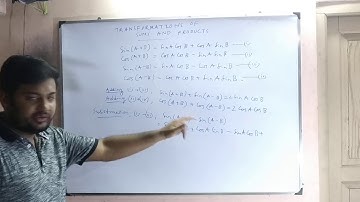 TRANSFORMATIONS OF
SUMS AND PRODUCTS
Sin(A+B) = SinA CosB + CosA SinB
Cos(A+B) = CosA CosB - SinA SinB
Sin(A-B) = SinA CosB - CosA SinB
Cos(A-B) = CosA CosB + SinA SinB
Adding Sin(A+B) + Sin(A-B) = 2 SinA CosB
Adding Cos(A+B) + Cos(A-B) = 2 CosA CosB
Subtracting Sin(A-B)
+ CosA SinB - SinA CosB +